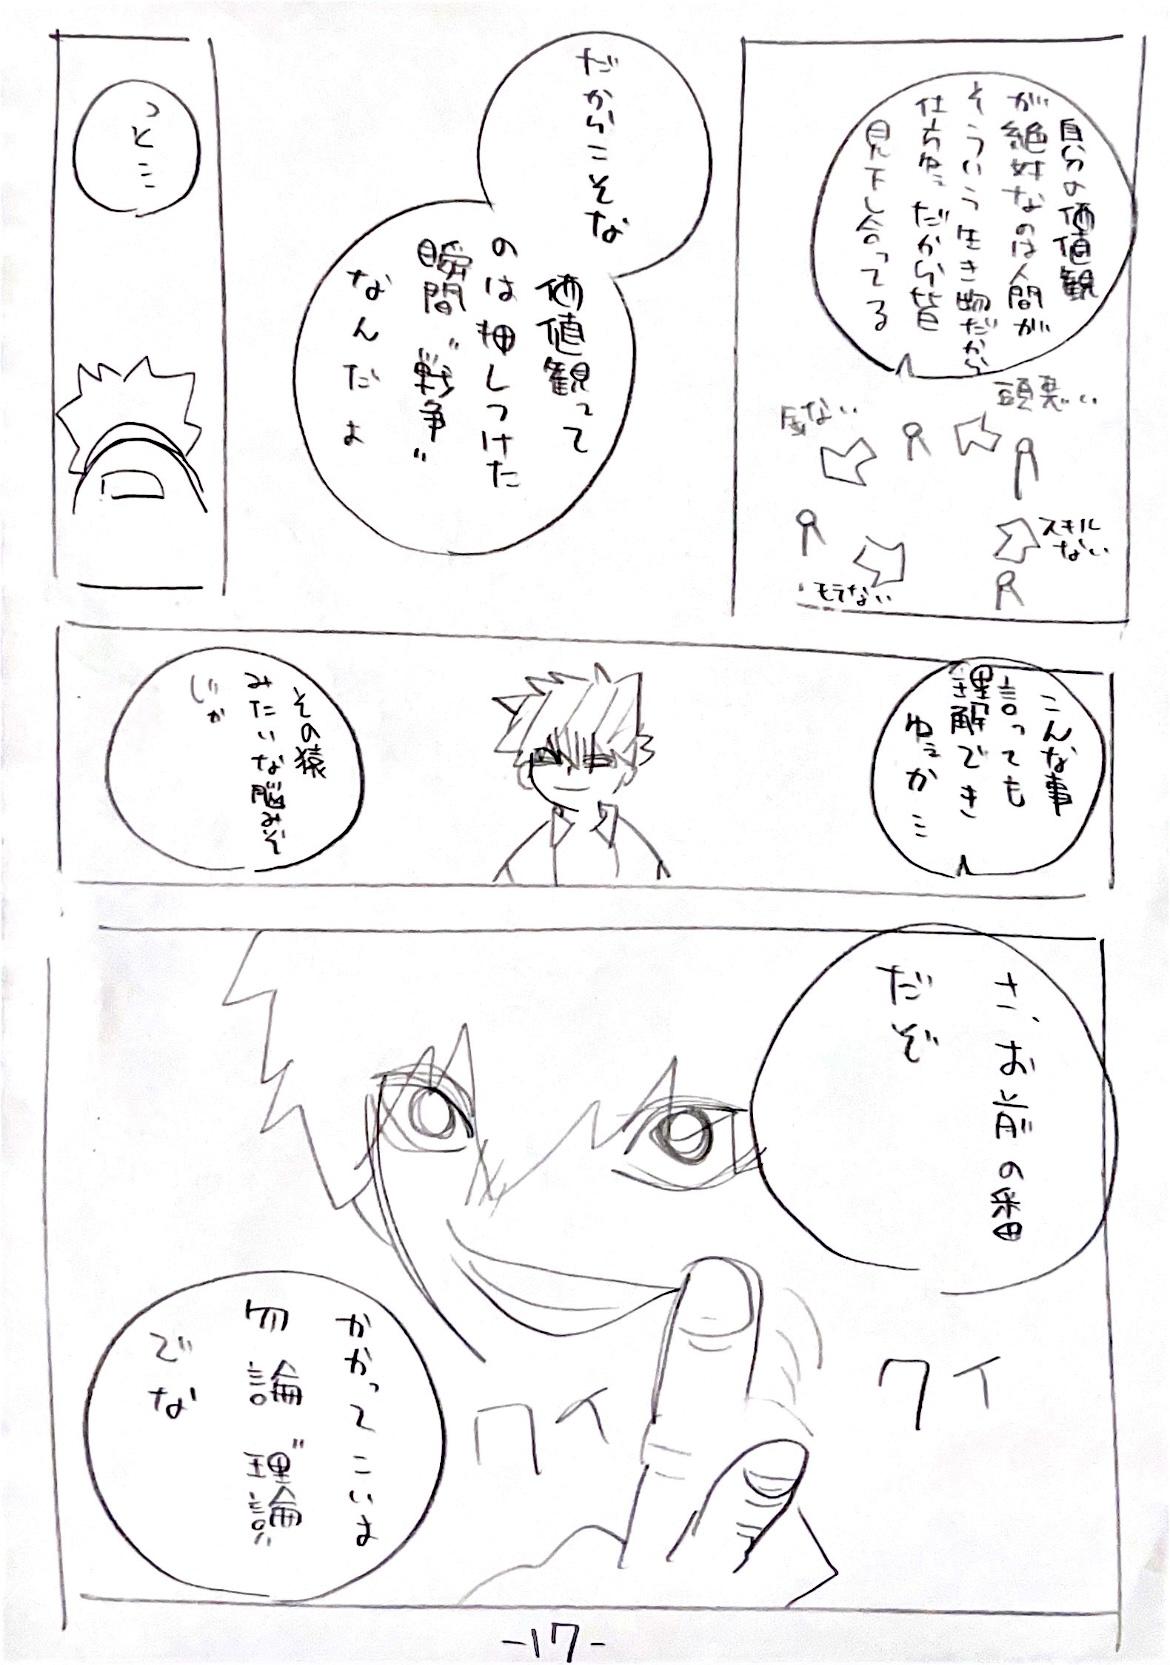 自分の価値観
が絶対なのは人間が
そういう生き物だから
仕方ねぇだから皆
見下し合ってる
頭悪い
金ない
スキル
ない
モラない
だからこそな
価値観って
のは押しつけた
瞬間〝戦争〟
なんだよ
っと…
こんな事
言っても
理解でき
ねぇか…
その猿
みたいな脳みそ
じゃ
さ、お前の番
だぞ
クイ
クイ
かかってこいよ
勿論〝理論〟
でな
-17-